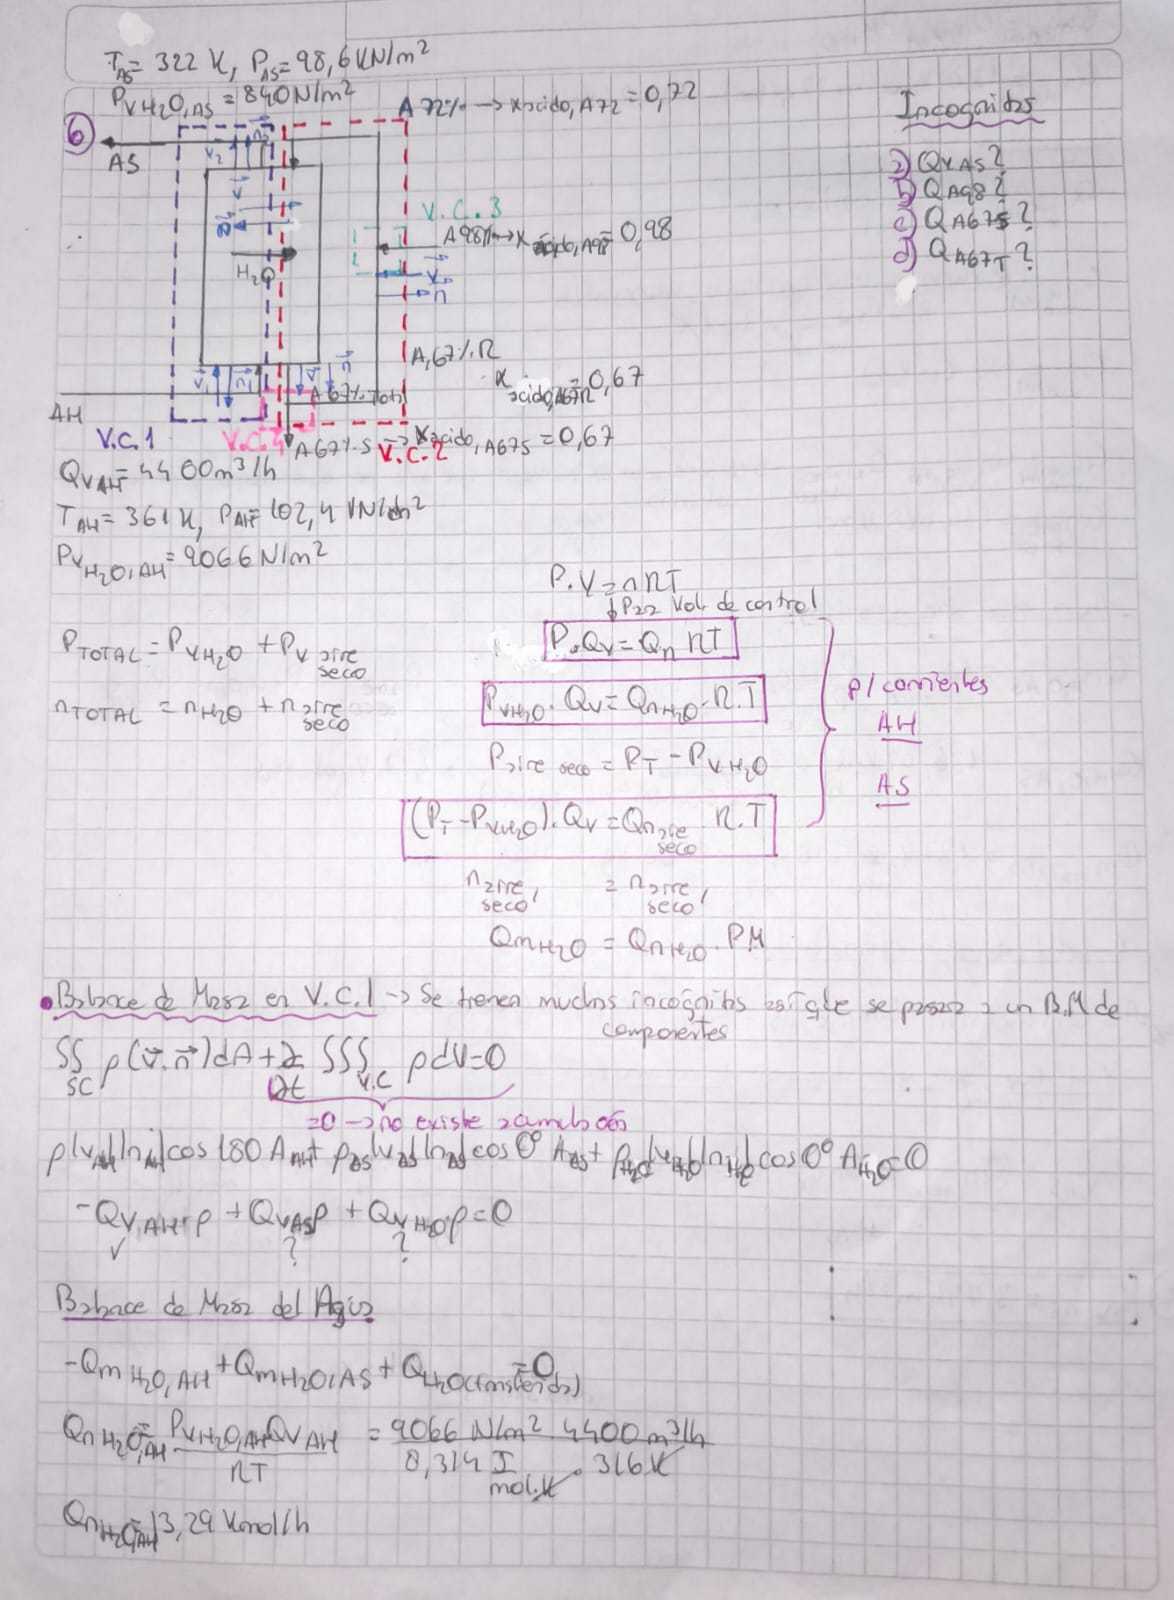 T_AS = 322 K, P_AS = 98,6 KN/m²
P_V H₂O,AS = 840 N/m²
A 72% → x ácido, A72 = 0,72
Incognitas
6
AS
V₂
n₂
a) Qv AS?
b) QA98?
c) QA67S?
d) QA67T?
V.C.3
A98% → x ácido, A98 = 0,98
H₂O
v
n
A, 67% R
x ácido, A67R = 0,67
V₁
n₁
v
n
A 67% Total
AH
V.C.1
V.C.4
A 67% S → x ácido, A67S = 0,67
V.C.2
Qv AH = 4400 m³/h
T_AH = 361 K, P_AH = 102,4 KN/m²
Pv H₂O, AH = 9066 N/m²
P.V = nRT
↓ Para Vol. de control
P.Qv = Qn RT
P_TOTAL = P_V H₂O + P_V aire seco
n_TOTAL = n H₂O + n aire seco
P_V H₂O . Qv = Qn H₂O . R.T
p/ corrientes
AH
AS
P aire seco = P_T - P_V H₂O
(P_T - P_V H₂O). Qv = Qn aire seco . R.T
n aire seco, = n aire seco,
Qm H₂O = Qn H₂O . PM
• Balance de Masa en V.C.1 → Se tienen muchas incógnitas así que se pasa a un B.M de componentes
∫∫ SC ρ(v.n)dA + ∂/∂t ∫∫∫ V.C ρdV=0
=0 → no existe acumulación
ρ|v_AH||n_AH|cos 180 A_AH + ρ_AS|v_AS||n_AS|cos 0° A_AS + ρ_H₂O|v_H₂O||n_H₂O|cos 0° A_H₂O = 0
-Qv,AH.ρ + Qv_AS ρ + Qv H₂O.ρ = 0
✓ ? ?
Balance de Masa del Agua
-Qm H₂O, AH + Qm H₂O, AS + Q H₂O (transferida) = 0
Qn H₂O, AH = Pv H₂O, AH Qv AH / RT = 9066 N/m² 4400 m³/h / 8,314 J/mol.K . 316 K
Qn H₂O, AH = 13,29 Kmol/h